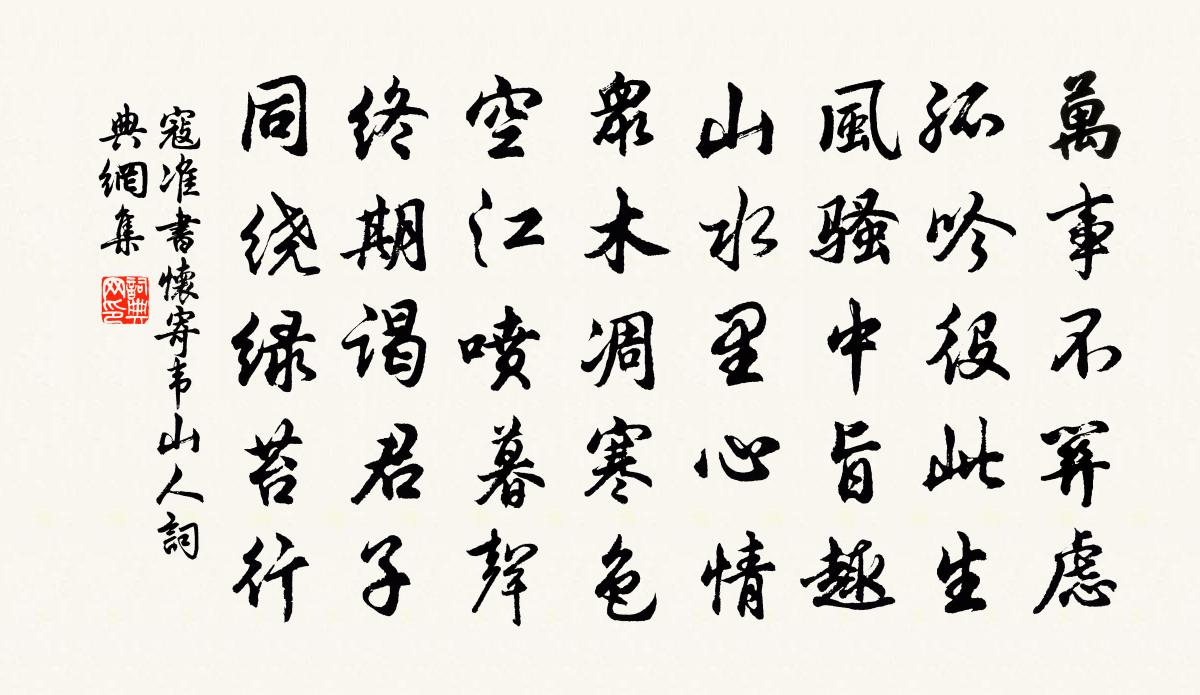 萬事不關慮
孤吟役此生
風騷中旨趣
山水里心情
眾木凋寒色
空江喷暮聲
终期谒君子
同绕绿苔行
寇准書懷寄韦山人詞
典網集
詞典
网印